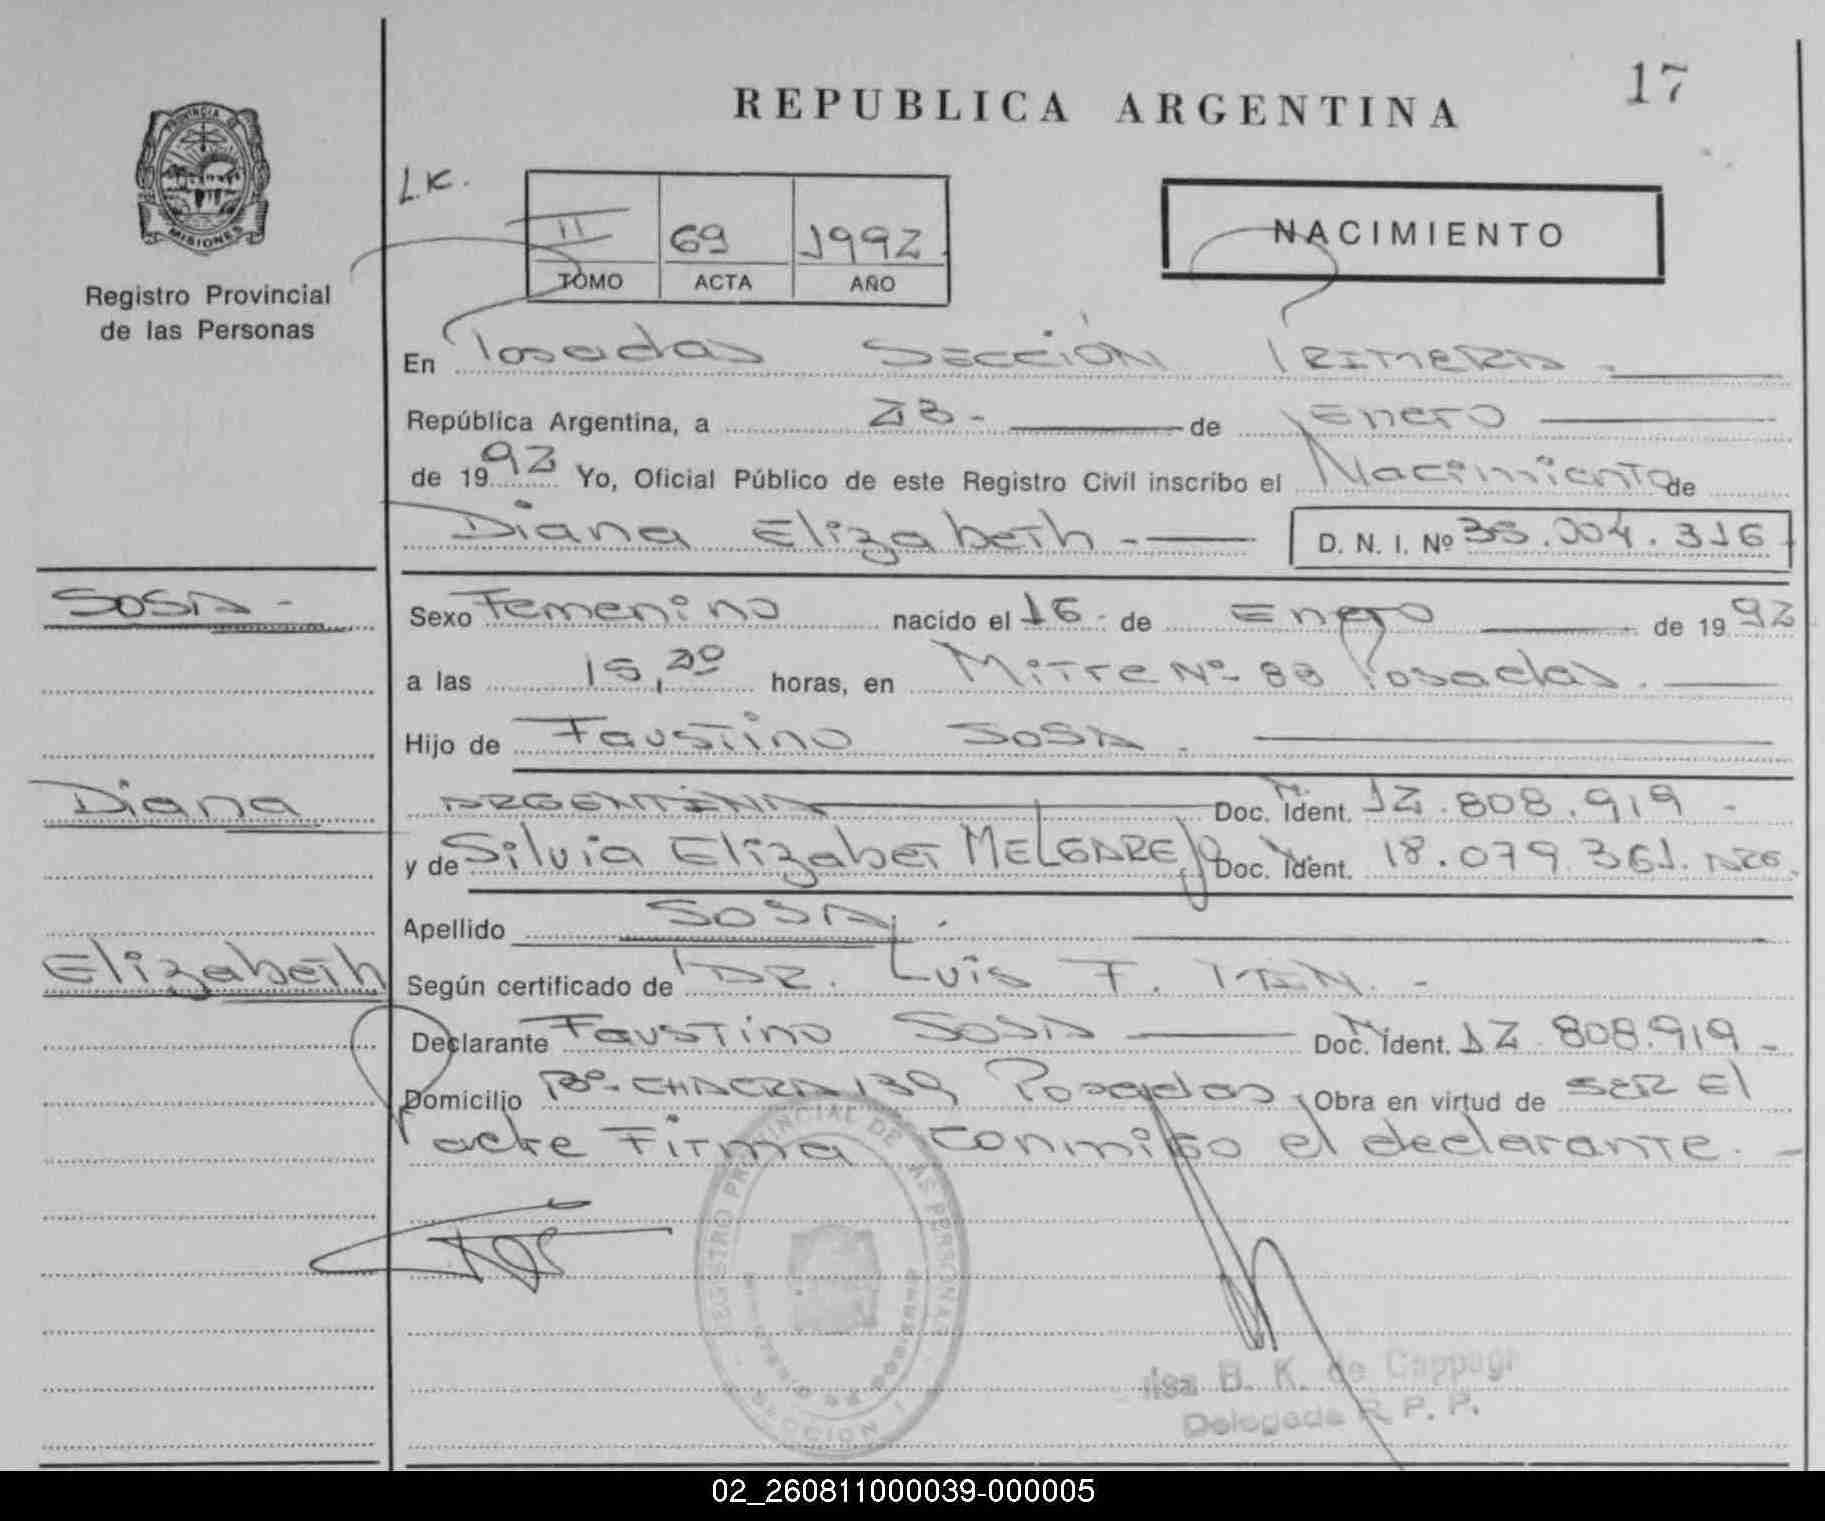 17
REPUBLICA ARGENTINA
PROVINCIA DE
MISIONES
Registro Provincial
de las Personas
L.K.
II 69 1992
TOMO ACTA AÑO
NACIMIENTO
En Posadas SECCIÓN PRIMERA.
República Argentina, a 23 - de Enero
de 1992 Yo, Oficial Público de este Registro Civil inscribo el Nacimiento de
Diana Elizabeth - D. N. I. Nº
SOSA -
Sexo Femenino nacido el 16 - de Enero de 1992
a las 15,20 horas, en Mitre Nº 83 Posadas.
Hijo de Faustino SOSA.
Diana
ARGENTINA Doc. Ident. 12.808.919 -
y de Silvia Elizabet MELGAREJO Doc. Ident. 18.079.361. ARG.
Apellido SOSA.
Elizabeth
Según certificado de DR. Luis F.
Declarante Faustino SOSA Doc. Ident. 12.808.919 -
Domicilio Bº CHACRA 139 Posadas Obra en virtud de SER El
Padre Firma conmigo el declarante. -
REGISTRO PROVINCIAL DE LAS PERSONAS
SECCION 1
Ilsa B. K. de
Delegada R. P. P.
02_260811000039-000005